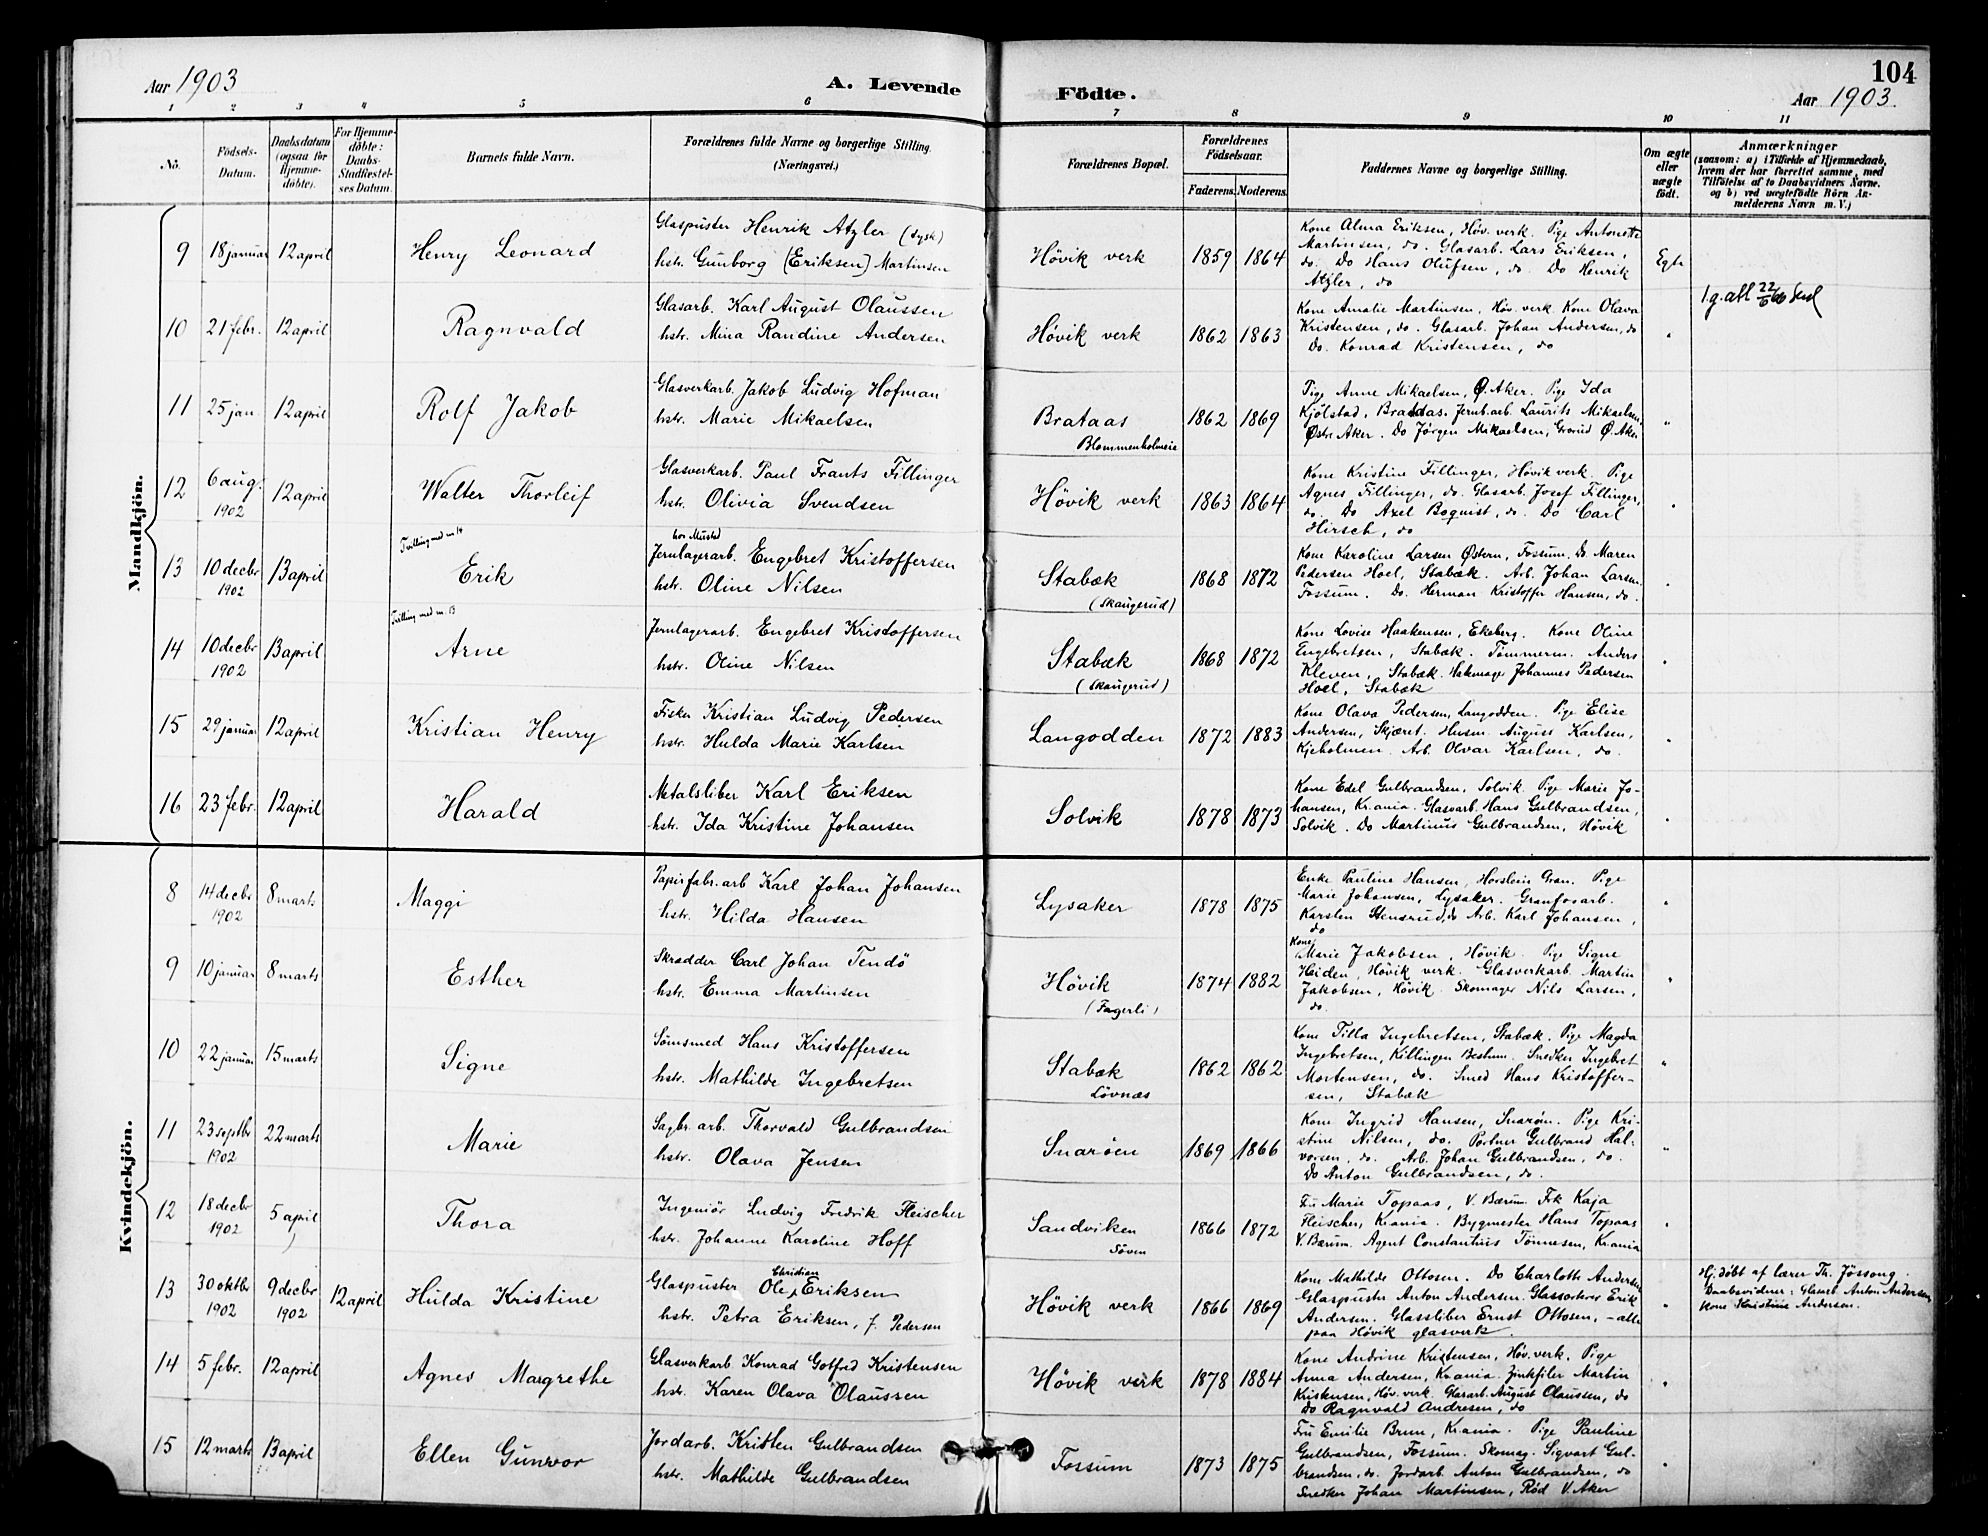 104
Aar 1903
A. Levende Födte.
Aar 1903.
1 2 3 4 5 6 7 8 9 10 11
No.
Födsels-Datum.
Daabsdatum (ogsaa for Hjemmedöbte).
For Hjemmedöbte: Daabs-Stadfæstelses Datum.
Barnets fulde Navn.
Forældrenes fulde Navne og borgerlige Stilling. (Næringsvei.)
Forældrenes Bopæl.
Forældrenes Födselsaar.
Faderens. Moderens.
Faddernes Navne og borgerlige Stilling.
Om ægte eller uægte födt.
Anmærkninger
(saasom: a) i Tilfælde af Hjemmedaab,
hvem der har forrettet samme, med
Tilföielse af to Daabsvidners Navne.
og b) ved uægtefödte Börn An-
melderens Navn m. V.)
Mandkjön.
9 18 januar 12 april Henry Leonard
Glaspuster Henrik Atzler (tysk)
hstr. Gunborg (Eriksen) Martinsen
Høvik verk 1859 1864
Kone Alma Eriksen, Høv. verk. Pige Antonette
Martinsen, do. Glasarb. Lars Eriksen,
do. Do Hans Olufsen, do. Do Henrik
Atzler, do
Egte
10 21 febr. 12 april Ragnvald
Glasarb. Karl August Olaussen
hstr. Mina Randine Andersen
Høvik verk 1862 1863
Kone Amalie Martinsen, Høv. verk. Kone Olava
Kristensen, do. Glasarb. Johan Andersen, do
Do. Konrad Kristensen, do
"
11 25 jan. 12 april Rolf Jakob
Glasverkarb. Jakob Ludvig Hofman
hstr. Marie Mikaelsen
Brataas
Blommenholmeie
1862 1869
Pige Anne Mikaelsen, Ø. Aker. Pige Ida
Kjölstad, Brataas. Jernb.arb. Laurits Mikaelsen,
Østre Aker. Do Jørgen Mikaelsen, Grorud Ø. Aker
"
12 6 aug. 1902 12 april Walter Thorleif
Glasverkarb. Paul Frants Fillinger
hstr. Olivia Svendsen
Høvik verk 1863 1864
Kone Kristine Fillinger, Høvik verk. Pige
Agnes Fillinger, do. Glasarb. Josef Fillinger,
do. Do Axel Boquist, do. Do Carl
Hirsch, do
"
Tvilling med nr 14
13 10 decbr 1902 13 april Erik
hos Mustad
Jernlagerarb. Engebret Kristoffersen
hstr. Oline Nilsen
Stabæk
(Skaugerud)
1868 1872
Kone Karoline Larsen Østern, Fossum. Do Maren
Pedersen Hoel, Stabæk. Arb. Johan Larsen,
Fossum. Do. Herman Kristoffer Hansen, do.
"
Tvilling med nr. 13
14 10 decbr 1902 13 april Arne
Jernlagerarb. Engebret Kristoffersen
hstr. Oline Nilsen
Stabæk
(Skaugerud)
1868 1872
Kone Lovise Haakensen, Ekeberg. Kone Oline
Engebretsen, Stabæk. Tømmerm. Anders
Kleven, Stabæk. Johannes Pedersen
Hoel, Stabæk
"
15 29 januar 12 april Kristian Henry
Fisker Kristian Ludvig Pedersen
hstr. Hulda Marie Karlsen
Langodden 1872 1883
Kone Olava Pedersen, Langodden. Pige Elise
Andersen, Skjæret. Husm. August Karlsen,
Kjeholmen. Arb. Olvar Karlsen, do.
"
16 23 febr. 12 april Harald
Metalsliber Karl Eriksen
hstr. Ida Kristine Johansen
Solvik 1878 1873
Kone Edel Gulbrandsen, Solvik. Pige Marie Jo-
hansen, Kr.ania. Glasvarb. Hans Gulbrandsen,
Solvik. Do Martinus Gulbrandsen, Høvik
"
Kvindekjön.
8 14 decbr 1902 8 marts Maggi
Papirfabr.arb Karl Johan Johansen
hstr. Hilda Hansen
Lysaker 1878 1875
Enke Pauline Hansen, Gran. Pige
Marie Johansen, Lysaker. Granfosarb.
Karsten Stensrud, do Arb. Karl Johansen,
do
"
9 10 januar 8 marts Esther
Skrædder Carl Johan Tendö
hstr. Emma Martinsen
Høvik
(Fagerli)
1874 1882
Kone Marie Jakobsen, Høvik. Pige Signe
Heiden, Høvik verk. Glasverkarb. Martin
Jakobsen, Høvik. Skomager Nils Larsen,
do.
"
10 22 januar 15 marts Signe
Sömsmed Hans Kristoffersen
hstr. Mathilde Ingebretsen
Stabæk
Lövnæs
1862 1862
Kone Tilla Ingebretsen, Stabæk. Pige Magda
Ingebretsen, Killingen Bestum. Snedker Ingebret
Mortensen, do. Smed Hans Kristoffer-
sen, Stabæk
"
11 23 septbr 1902 22 marts Marie
Sagbr. arb. Thorvald Gulbrandsen
hstr. Olava Jensen
Snaröen 1869 1866
Kone Ingrid Hansen, Snaröen. Pige Kri-
stine Nilsen, do. Portner Gulbrand Hal-
vorsen, do. Arb. Johan Gulbrandsen, do.
Do Anton Gulbrandsen, do.
"
12 18 decbr 1902 5 april Thora
Ingeniör Ludvig Fredrik Fleischer
hstr. Johanne Karoline Hoff
Sandviken
Söven
1866 1872
Fru Marie Topaas, V. Bærum. Frk Kaja
Fleischer, Kr.ania. Bygmester Hans Topaas
V. Bærum. Agent Constantius Tönnesen, Kr.ania
"
13 30 oktbr 1902 9 decbr 1902 12 april Hulda Kristine
Glaspuster Ole Christian Eriksen
hstr. Petra Eriksen, f. Pedersen
Høvik verk 1866 1869
Kone Mathilde Ottosen. Do Charlotte Andersen
Glaspuster Anton Andersen. Glassorterer Erik
Andersen. Glassliber Ernst Ottosen, - alle
paa Høvik glasverk.
"
Hj. döbt af lærer Th. Jössong.
Daabsvidner: Glasarb. Anton Andersen,
Kone Kristine Andersen.
14 5 febr. 12 april Agnes Margrethe
Glasverkarb. Konrad Gotfred Kristensen
hstr. Karen Olava Olaussen
Høvik verk 1878 1884
Kone Andrine Kristensen, Høv. verk. Pige
Anna Andersen, Kr.ania. Martin
Kristensen, Høv. verk. Glasarb. August Olaussen, do
Do Ragnvald Andresen, do
"
15 12 marts 13 april Ellen Gunvor
Jordarb. Kristen Gulbrandsen
hstr. Mathilde Gulbrandsen
Fossum 1873 1875
Fru Emilie Brun, Kr.ania. Pige Pauline
Gulbrandsen, Fossum. Skomag. Sigvart Gul-
brandsen, do. Jordarb. Anton Gulbrandsen, do
Snedker Johan Martinsen, Röd V. Aker
"